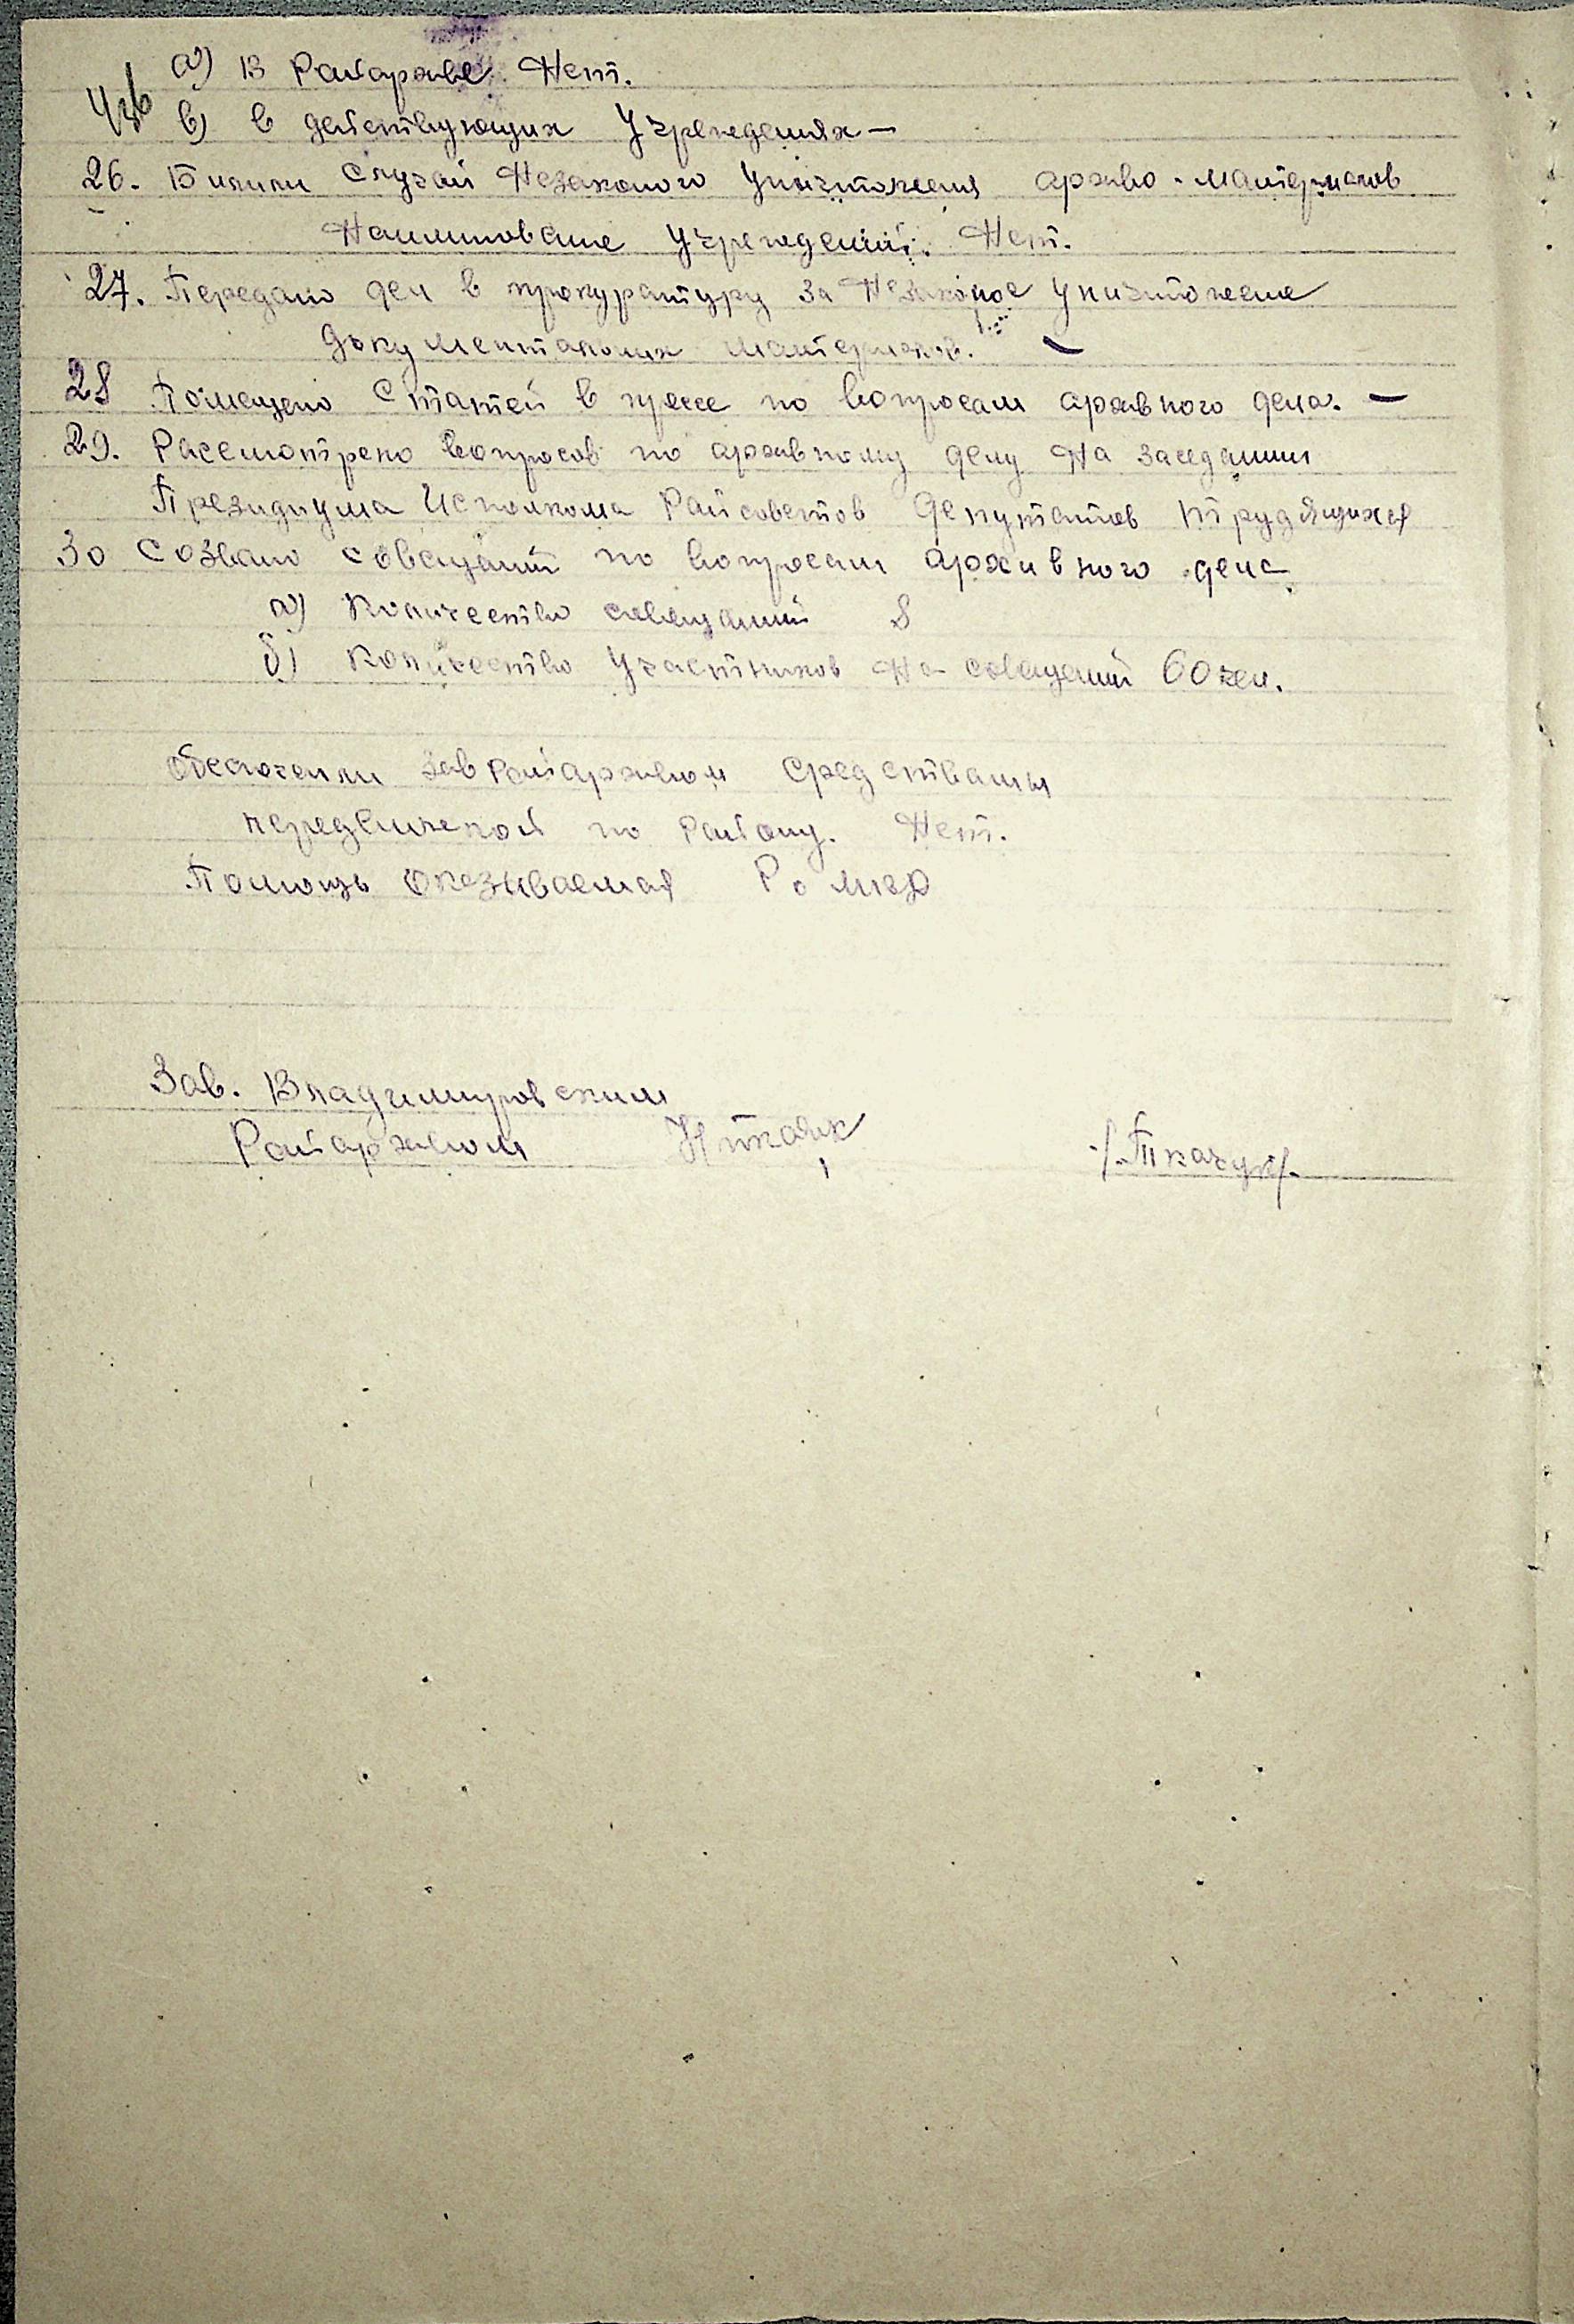 а) В Райархиве Нет.
в) в действующих учреждениях —
26. Билили Случаи Незаконого уничтожения архиво-материалов
Наиминование учреждений. Нет.
27. Передано дел в прокуратуру за Незаконое уничтожение
документальных материалов. —
28 Помещено Статей в прессе по вопросам архивного дела. —
29. Рассмотрено вопросов по архивному делу На заседании
Президиума Исполкома Райсоветов Депутатов трудящихся
30 Созвано совещаний по вопросам архивного дела
а) Количество совещаний 8
б) Количество участников На совещаний 60 чел.
обеспечен ли зав Райархивом Средствами
передвижений по Району. Нет.
Помощь Оказываемая Ро мвд
Зав. Владимировским
Райархивом
/.Ткачук/.